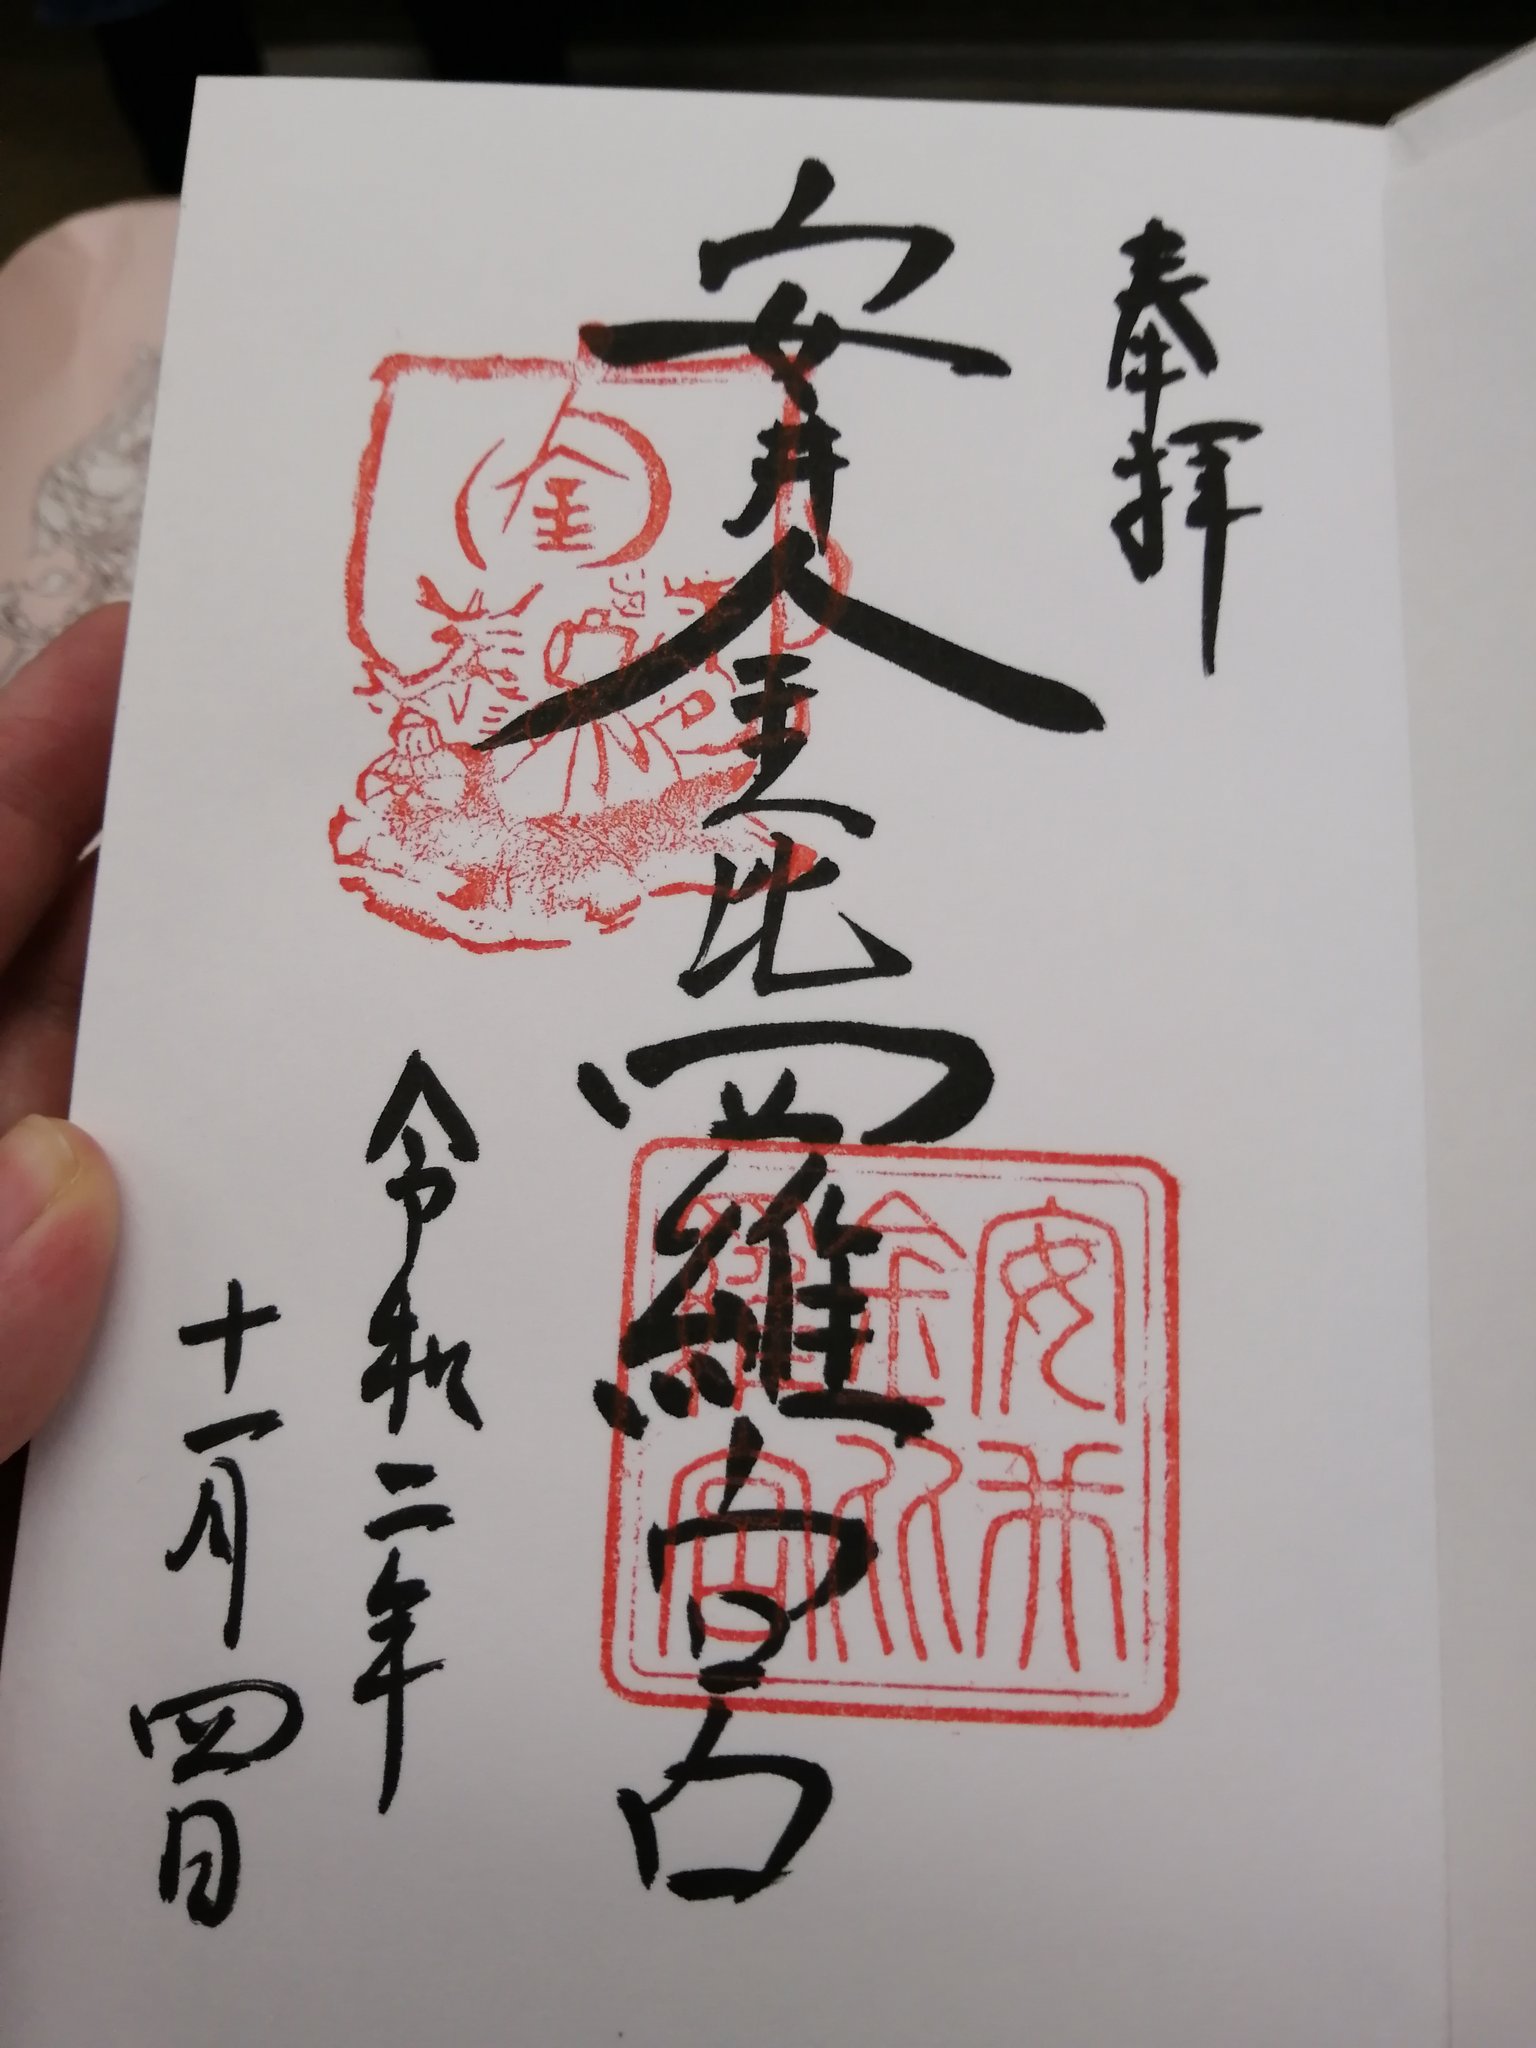 奉拝
安井金比羅宮
令和二年
十一月四日
金
安井
金比
羅宮